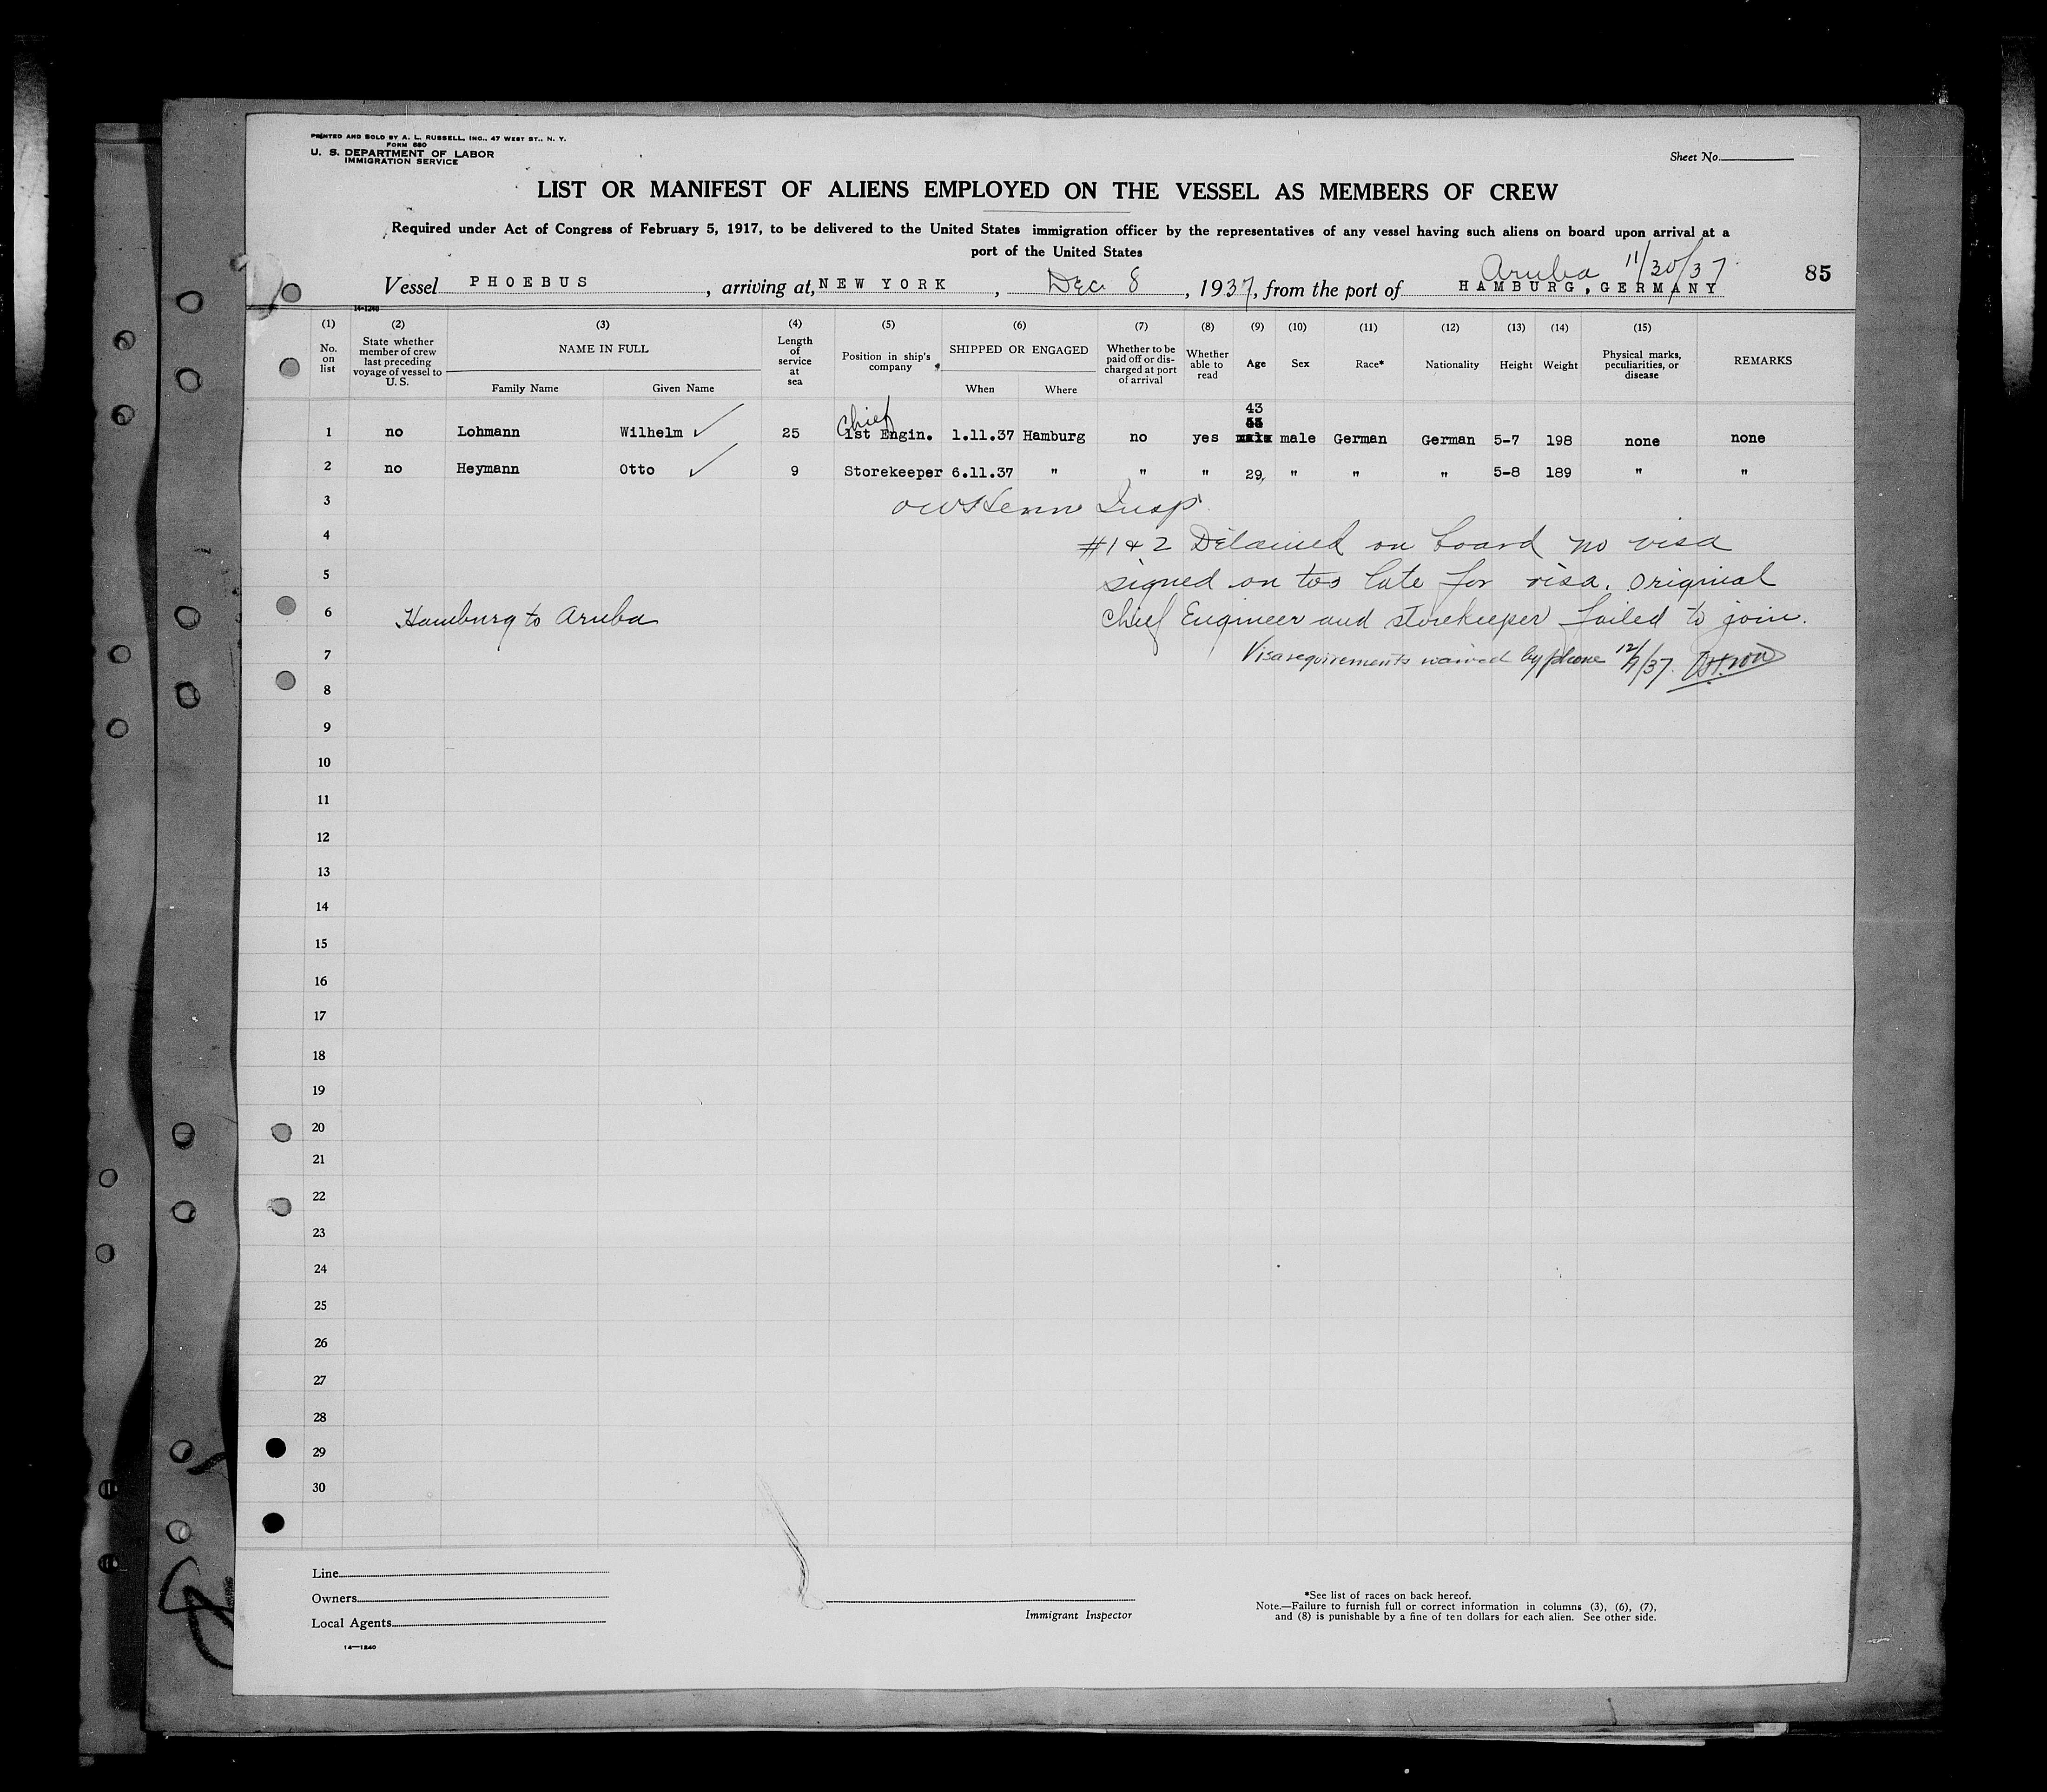 PRINTED AND SOLD BY A. L. RUSSELL, INC., 47 WEST ST., N. Y.
FORM 680
U. S. DEPARTMENT OF LABOR
IMMIGRATION SERVICE
Sheet No.
LIST OR MANIFEST OF ALIENS EMPLOYED ON THE VESSEL AS MEMBERS OF CREW
Required under Act of Congress of February 5, 1917, to be delivered to the United States immigration officer by the representatives of any vessel having such aliens on board upon arrival at a
port of the United States
Aruba 11/30/37
85
Vessel PHOEBUS, arriving at, NEW YORK, Dec 8, 1937, from the port of HAMBURG, GERMANY
14-1240
(1) (2) (3) (4) (5) (6) (7) (8) (9) (10) (11) (12) (13) (14) (15)
No. on list
State whether member of crew last preceding voyage of vessel to U. S.
NAME IN FULL
Family Name
Given Name
Length of service at sea
Position in ship's company
SHIPPED OR ENGAGED
When
Where
Whether to be paid off or discharged at port of arrival
Whether able to read
Age
Sex
Race*
Nationality
Height
Weight
Physical marks, peculiarities, or disease
REMARKS
Chief
43
1 no Lohmann Wilhelm ✓ 25 1st Engin. 1.11.37 Hamburg no yes male German German 5-7 198 none none
2 no Heymann Otto ✓ 9 Storekeeper 6.11.37 " " " 29 " " " 5-8 189 " "
3 Insp.
4 #1 & 2 Detained on board no visa
5 signed on too late for visa. Original
6 Hamburg to Aruba Chief Engineer and storekeeper failed to join.
7 Visa requirements waived by phone 12/7/37.
8
9
10
11
12
13
14
15
16
17
18
19
20
21
22
23
24
25
26
27
28
29
30
Line
Owners
Local Agents
14—1240
Immigrant Inspector
*See list of races on back hereof.
Note.—Failure to furnish full or correct information in columns (3), (6), (7),
and (8) is punishable by a fine of ten dollars for each alien. See other side.